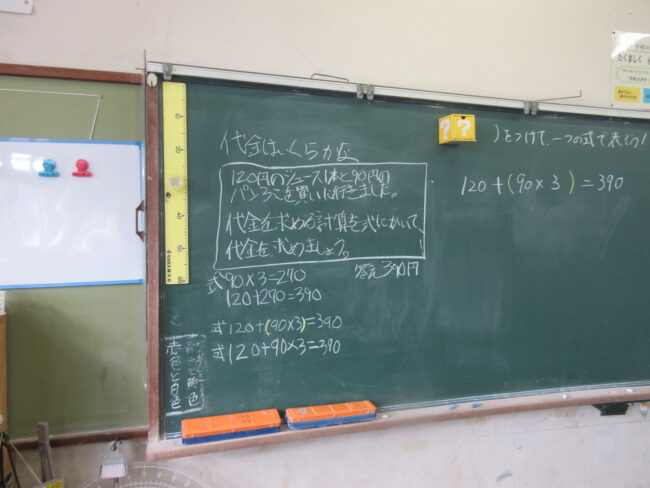 代金はいくらかな
120円のジュース1本と90円の
パン3こを買いに行きました。
代金を求める計算を式にかいて
代金を求めましょう。
式90×3=270
120+270=390
答え390円
式120+(90×3)=390
式120+90×3=390
赤色と白色
)をつけて、一つの式で表そう!
120+(90×3)=390
? ?
たくましく